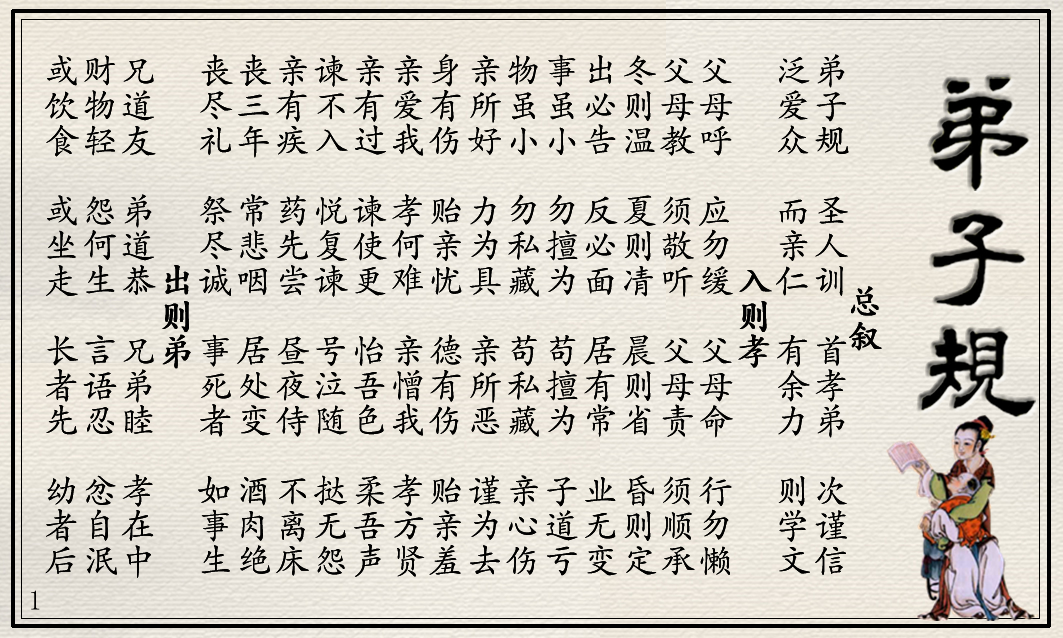 弟子規
总叙
弟子规 圣人训 首孝弟 次谨信
泛爱众 而亲仁 有余力 则学文
入则孝
父母呼 应勿缓 父母命 行勿懒
父母教 须敬听 父母责 须顺承
冬则温 夏则凊 晨则省 昏则定
出必告 反必面 居有常 业无变
事虽小 勿擅为 苟擅为 子道亏
物虽小 勿私藏 苟私藏 亲心伤
亲所好 力为具 亲所恶 谨为去
身有伤 贻亲忧 德有伤 贻亲羞
亲爱我 孝何难 亲憎我 孝方贤
亲有过 谏使更 怡吾色 柔吾声
谏不入 悦复谏 号泣随 挞无怨
亲有疾 药先尝 昼夜侍 不离床
丧三年 常悲咽 居处变 酒肉绝
丧尽礼 祭尽诚 事死者 如事生
出则弟
兄道友 弟道恭 兄弟睦 孝在中
财物轻 怨何生 言语忍 忿自泯
或饮食 或坐走 长者先 幼者后
1